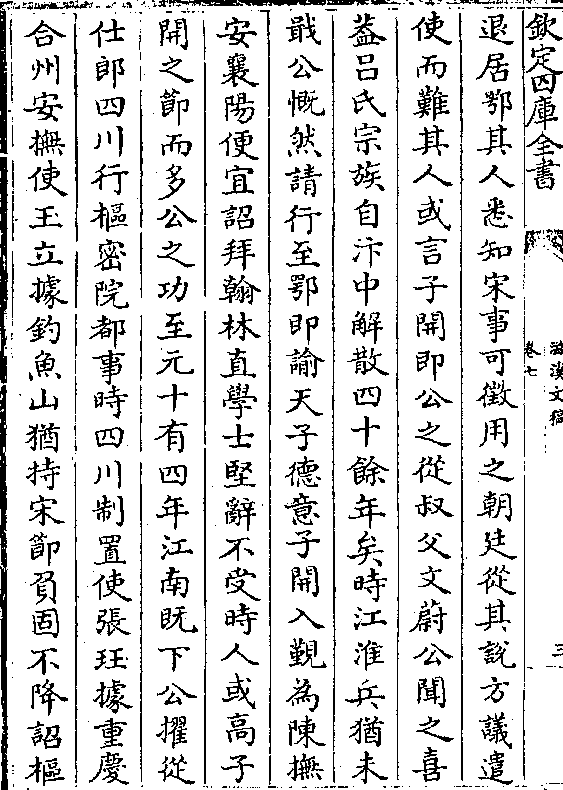 欽定四庫全書
滋溪文稿
卷七
三
退居鄂其人悉知宋事可徵用之朝廷從其説方議遣
使而難其人或言子開即公之從叔父文蔚公聞之喜
葢吕氏宗族自汴中解散四十餘年矣時江淮兵猶未
戢公慨然請行至鄂即諭天子德意子開入覲為陳撫
安襄陽便宜詔拜翰林直學士堅辭不受時人或高子
開之節而多公之功至元十有四年江南既下公擢從
仕郎四川行樞密院都事時四川制置使張珏據重慶
合州安撫使王立據釣魚山猶持宋節負固不降詔樞